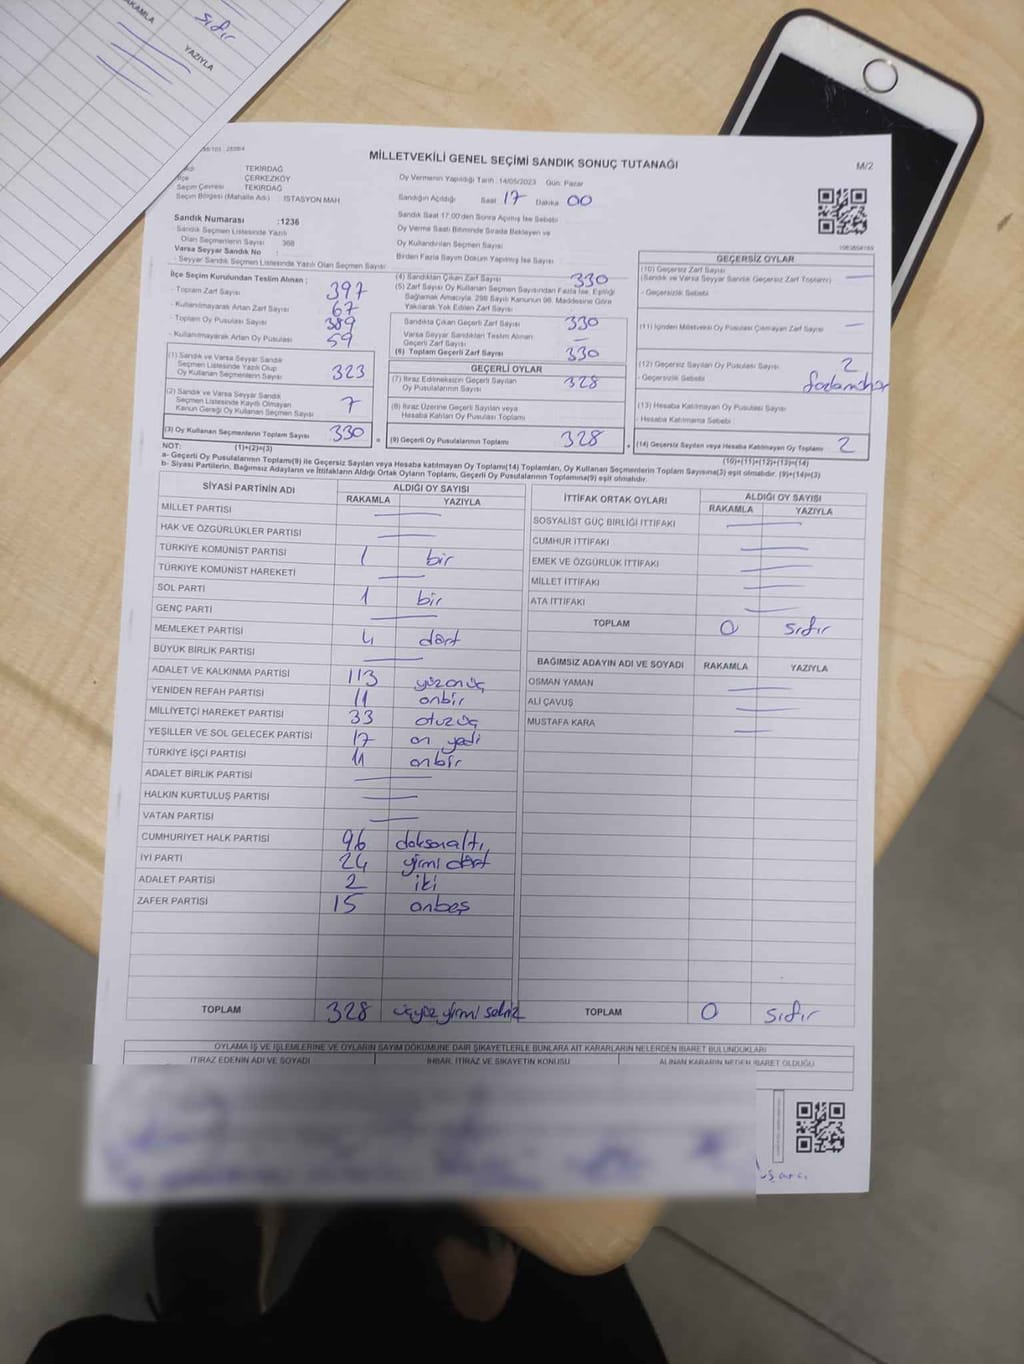 RAKAMLA
sıfır
YAZIYLA
MİLLETVEKİLİ GENEL SEÇİMİ SANDIK SONUÇ TUTANAĞI
M/2
TEKİRDAĞ
İlçe ÇERKEZKÖY
Seçim Çevresi TEKİRDAĞ
Seçim Bölgesi (Mahalle Adı) : İSTASYON MAH.
Sandık Numarası :1236
Sandık Seçmen Listesinde Yazılı
Olan Seçmenlerin Sayısı : 368
Varsa Seyyar Sandık No
- Seyyar Sandık Seçmen Listesinde Yazılı Olan Seçmen Sayısı
Oy Vermenin Yapıldığı Tarih :14/05/2023 Gün: Pazar
Sandığın Açıldığı Saat 17 Dakika 00
Sandık Saat 17:00'den Sonra Açılmış İse Sebebi
Oy Verme Saati Bitiminde Sırada Bekleyen ve
Oy Kullandırılan Seçmen Sayısı
Birden Fazla Sayım Döküm Yapılmış İse Sayısı
İlçe Seçim Kurulundan Teslim Alınan :
- Toplam Zarf Sayısı 397
- Kullanılmayarak Artan Zarf Sayısı 67
- Toplam Oy Pusulası Sayısı 389
- Kullanılmayarak Artan Oy Pusulası 59
(1) Sandık ve Varsa Seyyar Sandık
Seçmen Listesinde Yazılı Olup
Oy Kullanan Seçmenlerin Sayısı 323
(2) Sandık ve Varsa Seyyar Sandık
Seçmen Listesinde Kayıtlı Olmayan
Kanun Gereği Oy Kullanan Seçmen Sayısı 7
(3) Oy Kullanan Seçmenlerin Toplam Sayısı 330
(4) Sandıktan Çıkan Zarf Sayısı 330
(5) Zarf Sayısı Oy Kullanan Seçmen Sayısından Fazla İse, Eşitliği
Sağlamak Amacıyla, 298 Sayılı Kanunun 98. Maddesine Göre
Yakılarak Yok Edilen Zarf Sayısı
Sandıkta Çıkan Geçerli Zarf Sayısı 330
Varsa Seyyar Sandıktan Teslim Alınan
Geçerli Zarf Sayısı —
(6) Toplam Geçerli Zarf Sayısı 330
GEÇERLİ OYLAR
(7) İtiraz Edilmeksizin Geçerli Sayılan
Oy Pusulalarının Sayısı 328
(8) İtiraz Üzerine Geçerli Sayılan veya
Hesaba Katılan Oy Pusulası Toplamı
(9) Geçerli Oy Pusulalarının Toplamı 328
GEÇERSİZ OYLAR
(10) Geçersiz Zarf Sayısı
(Sandık ve Varsa Seyyar Sandık Geçersiz Zarf Toplamı) —
- Geçersizlik Sebebi
(11) İçinden Milletvekili Oy Pusulası Çıkmayan Zarf Sayısı —
(12) Geçersiz Sayılan Oy Pusulası Sayısı 2
- Geçersizlik Sebebi
(13) Hesaba Katılmayan Oy Pusulası Sayısı
- Hesaba Katılmama Sebebi :
(14) Geçersiz Sayılan veya Hesaba Katılmayan Oy Toplamı 2
NOT: (1)+(2)=(3)
(10)+(11)+(12)+(13)=(14)
a- Geçerli Oy Pusulalarının Toplamı(9) ile Geçersiz Sayılan veya Hesaba katılmayan Oy Toplamı(14) Toplamları, Oy Kullanan Seçmenlerin Toplam Sayısına(3) eşit olmalıdır. (9)+(14)=(3)
b- Siyasi Partilerin, Bağımsız Adayların ve İttifakların Aldığı Ortak Oyların Toplamı, Geçerli Oy Pusulalarının Toplamına(9) eşit olmalıdır.
SİYASİ PARTİNİN ADI ALDIĞI OY SAYISI
RAKAMLA YAZIYLA
MİLLET PARTİSİ —
HAK VE ÖZGÜRLÜKLER PARTİSİ —
TÜRKİYE KOMÜNİST PARTİSİ 1 bir
TÜRKİYE KOMÜNİST HAREKETİ —
SOL PARTİ 1 bir
GENÇ PARTİ —
MEMLEKET PARTİSİ 4 dört
BÜYÜK BİRLİK PARTİSİ —
ADALET VE KALKINMA PARTİSİ 113 yüzonüç
YENİDEN REFAH PARTİSİ 11 onbir
MİLLİYETÇİ HAREKET PARTİSİ 33 otuzüç
YEŞİLLER VE SOL GELECEK PARTİSİ 17 on yedi
TÜRKİYE İŞÇİ PARTİSİ 11 onbir
ADALET BİRLİK PARTİSİ —
HALKIN KURTULUŞ PARTİSİ —
VATAN PARTİSİ —
CUMHURİYET HALK PARTİSİ 96 doksanaltı
İYİ PARTİ 24 yirmi dört
ADALET PARTİSİ 2 iki
ZAFER PARTİSİ 15 onbeş
TOPLAM 328 üçyüz yirmi sekiz
İTTİFAK ORTAK OYLARI ALDIĞI OY SAYISI
RAKAMLA YAZIYLA
SOSYALİST GÜÇ BİRLİĞİ İTTİFAKI —
CUMHUR İTTİFAKI —
EMEK VE ÖZGÜRLÜK İTTİFAKI —
MİLLET İTTİFAKI —
ATA İTTİFAKI —
TOPLAM 0 sıfır
BAĞIMSIZ ADAYIN ADI VE SOYADI RAKAMLA YAZIYLA
OSMAN YAMAN —
ALİ ÇAVUŞ —
MUSTAFA KARA —
TOPLAM 0 sıfır
OYLAMA İŞ VE İŞLEMLERİNE VE OYLARIN SAYIM DÖKÜMÜNE DAİR ŞİKAYETLERLE BUNLARA AİT KARARLARIN NELERDEN İBARET BULUNDUKLARI
İTİRAZ EDENİN ADI VE SOYADI İHBAR, İTİRAZ VE ŞİKAYETİN KONUSU ALINAN KARARIN NEDEN İBARET OLDUĞU